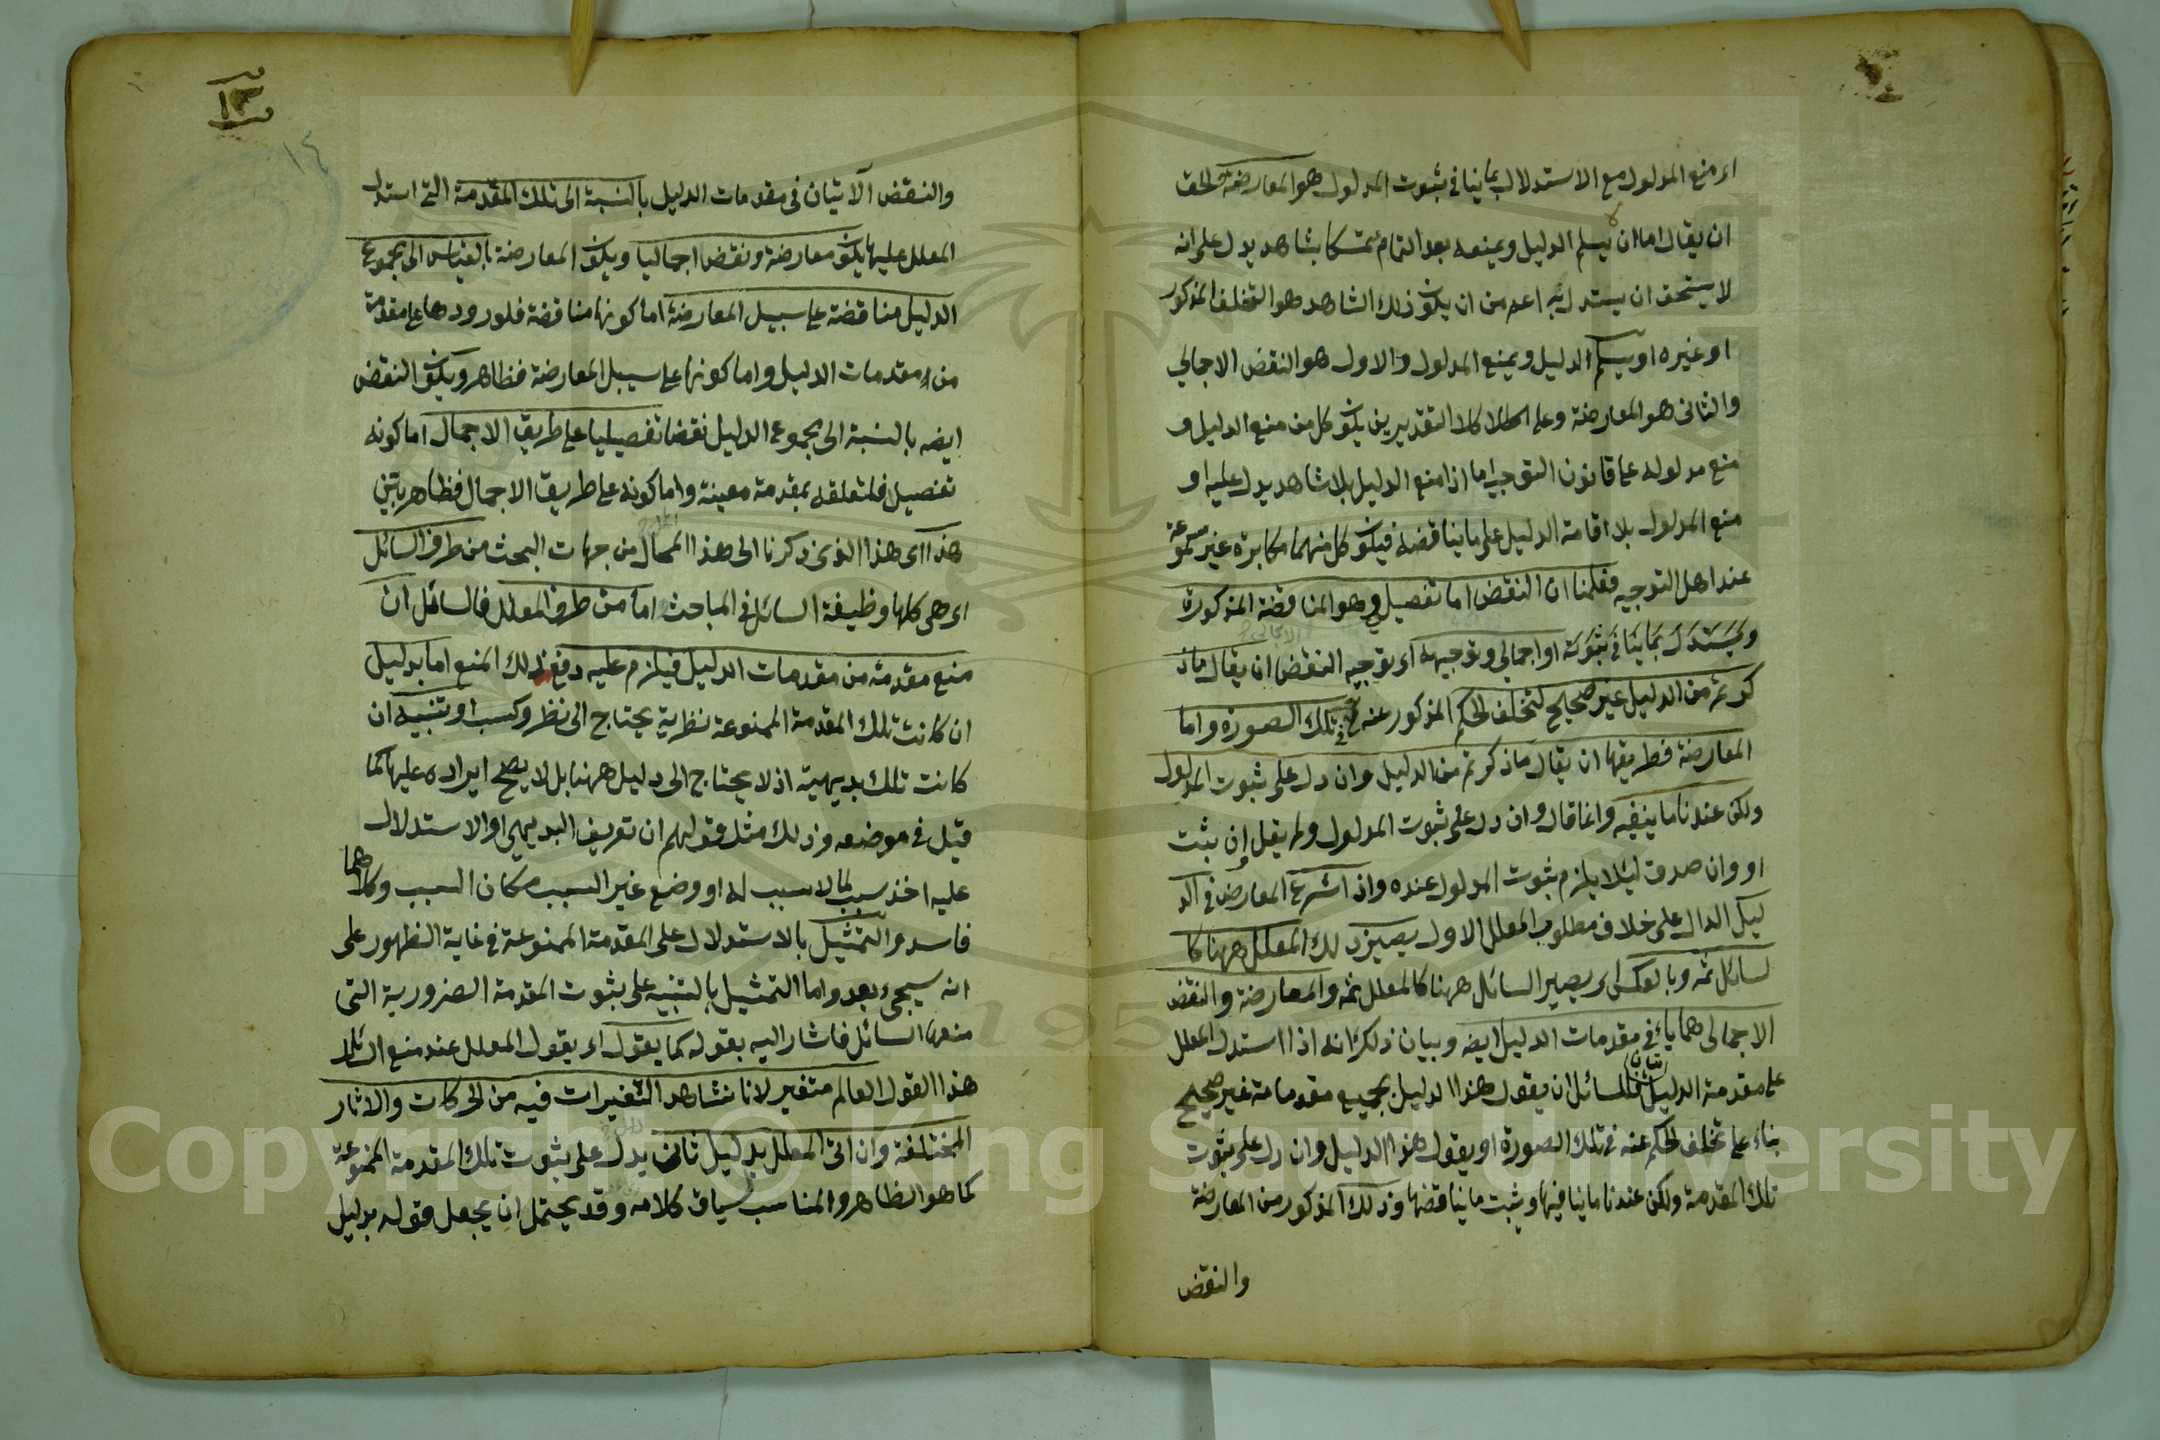 اى منع المدلول مع الاستدلال بما ينافى ثبوت المدلول هو المعارضة والحق
ان يقال اما ان يسلم الدليل ويمنعه بعد التمام متمسكا بشاهد يدل على انه
لا يستحق ان يستدل به اعم من ان يكون ذلك الشاهد هو التخلف المذكور
او غيره او يسلم الدليل ويمنع المدلول والاول هو النقض الاجمالي
والثانى هو المعارضة وعلى كلا التقديرين يكون كل من منع الدليل و
منع مدلوله على قانون التوجيه اما اذا منع الدليل بلا شاهد يدل عليه او
منع المدلول بلا اقامة الدليل على ما يناقضه فيكون كل منهما مكابرة غير مسموعة
عند اهل التوجيه فعلمنا ان النقض اما تفصيلي وهو المناقضة المذكورة
ويستدل بما ينافى ثبوته او اجمالي وتوجيهه اى توجيه النقض ان يقال ما ذ
كرتم من الدليل غير صحيح لتخلف الحكم المذكور عنه فى تلك الصورة واما
المعارضة فطريقها ان يقال ما ذكرتم من الدليل وان دل على ثبوت المدلول
ولكن عندنا ما ينفيه وانما قال وان دل على ثبوت المدلول ولم يقل ان يثبت
او وان صدق لئلا يلزم ثبوت المدلول عنده واذا شرع المعارض فى الد
ليل الدال على خلاف مطلوب المعلل الاول يصير ذلك المعلل ههنا كا
لسائل ثمه وبالعكس اى يصير السائل ههنا كالمعلل ثمه والمعارضة والنقض
الاجمالى هما يأتيان فى مقدمات الدليل ايضه وبيان ذلك انه اذا استدل المعلل
على مقدمة الدليل للسائل ان يقول هذا الدليل بجميع مقدماته غير صحيح
بناء على تخلف الحكم عنه فى تلك الصورة او يقول هذا الدليل وان دل على ثبوت
تلك المقدمة ولكن عندنا ما ينافيها ويثبت ما يناقضها وذلك المذكور من المعارضة
والنقض
١٣
١٤
والنقض الآتيان فى مقدمات الدليل بالنسبة الى تلك المقدمة التى استدل
المعلل عليها يكون معارضة ونقضا اجماليا ويكون المعارضة بالقياس الى مجموع
الدليل مناقضة على سبيل المعارضة اما كونها مناقضة فلورودها على مقدمة
من مقدمات الدليل واما كونها على سبيل المعارضة فظاهر ويكون النقض
ايضه بالنسبة الى مجموع الدليل نقضا تفصيليا على طريق الاجمال اما كونه
تفصيل فلتعلقه بمقدمة معينة واما كونه على طريق الاجمال فظاهر
هذا اى هذا الذى ذكرنا الى هذا المحال من جهات البحث من طرف السائل
اى هى كلها وظيفة السائل فى المباحث اما من طرف المعلل فالسائل ان
منع مقدمة من مقدمات الدليل فيلزم عليه دفع ذلك المنع اما بدليل
ان كانت تلك المقدمة الممنوعة نظرية يحتاج الى نظر وكسب او تنبيه ان
كانت تلك بديهية اذ لا يحتاج الى دليل ههنا بل لا يصح ايراده عليها كما
قيل فى موضعه وذلك مثل قولهم ان تعريف البديهى او الاستدلال
عليه اخذ سبب لما لا سبب له او وضع غير السبب مكان السبب وكلاهما
فاسد والتمثيل بالاستدلال على المقدمة الممنوعة فى غاية الظهور على
انه سيجىء بعد واما التمثيل بالتنبيه على ثبوت المقدمة الضرورية التى
منعها السائل فاشار اليه بقوله كما يقول اى يقول المعلل عند منع السائل
هذا القول العالم متغير لانا نشاهد التغيرات فيه من الحركات والاثار
المختلفة وان اتى المعلل بدليل ثان يدل على ثبوت تلك المقدمة الممنوعة
كما هو الظاهر والمناسب لسياق كلامه وقد يحتمل ان يجعل قوله بدليل
Copyright © King Saud University